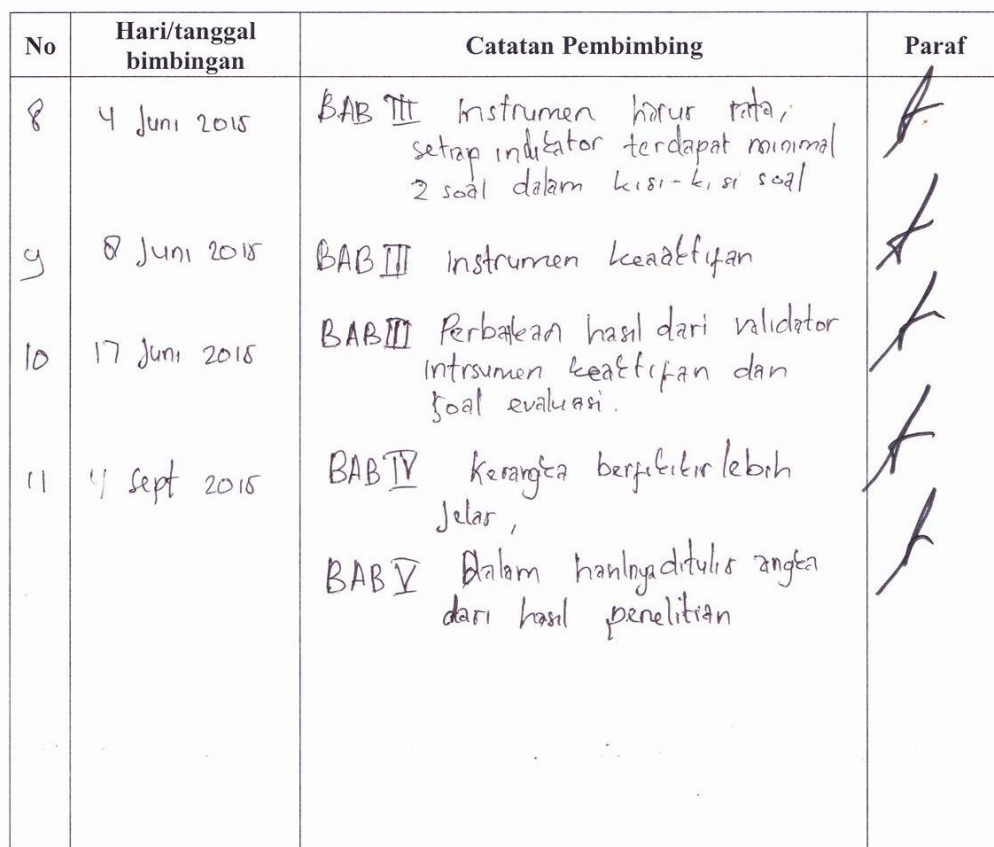 No Hari/tanggal bimbingan Catatan Pembimbing Paraf
8 4 Juni 2015 BAB III Instrumen harus rata,
setiap indikator terdapat minimal
2 soal dalam kisi-kisi soal
9 8 Juni 2015 BAB III Instrumen keaaktifan
10 17 Juni 2015 BAB III Perbaikan hasil dari validator
intrsumen keaktifan dan
soal evaluasi.
11 4 Sept 2015 BAB IV Kerangka berfikikir lebih
Jelas,
BAB V Dalam ditulis angka
dari hasil penelitian